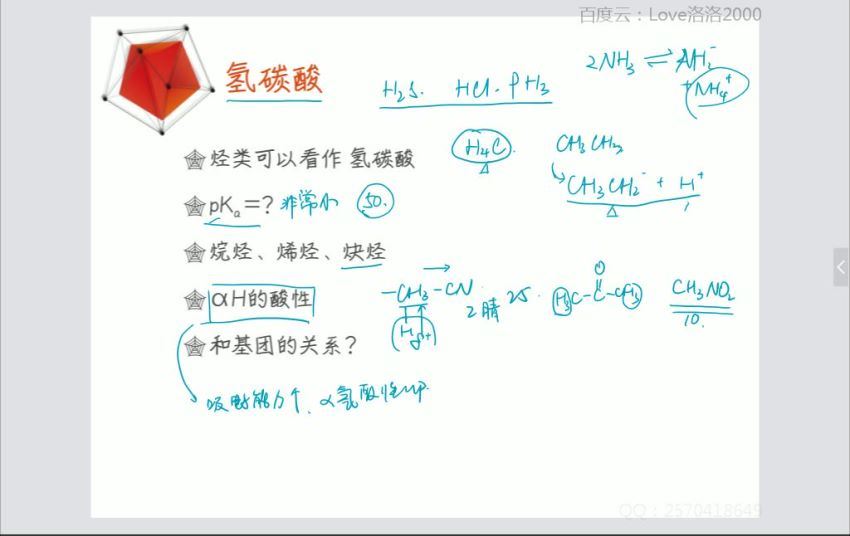 百度云：Love洛洛2000
氢碳酸
H₂S. HCl. PH₃
2NH₃ ⇌ NH₂⁻
+ NH₄⁺
烃类可以看作 氢碳酸
H₄C.
CH₃CH₃
CH₃CH₂⁻ + H⁺
pKₐ=? 非常小 50.
烷烃、烯烃、炔烃
αH的酸性
-CH₃-CN
乙腈 25.
Hδ+
O
H₃C-C-CH₃
CH₃NO₂
10.
和基团的关系？
吸电能力↑、α氢酸性up.
QQ：2570418649